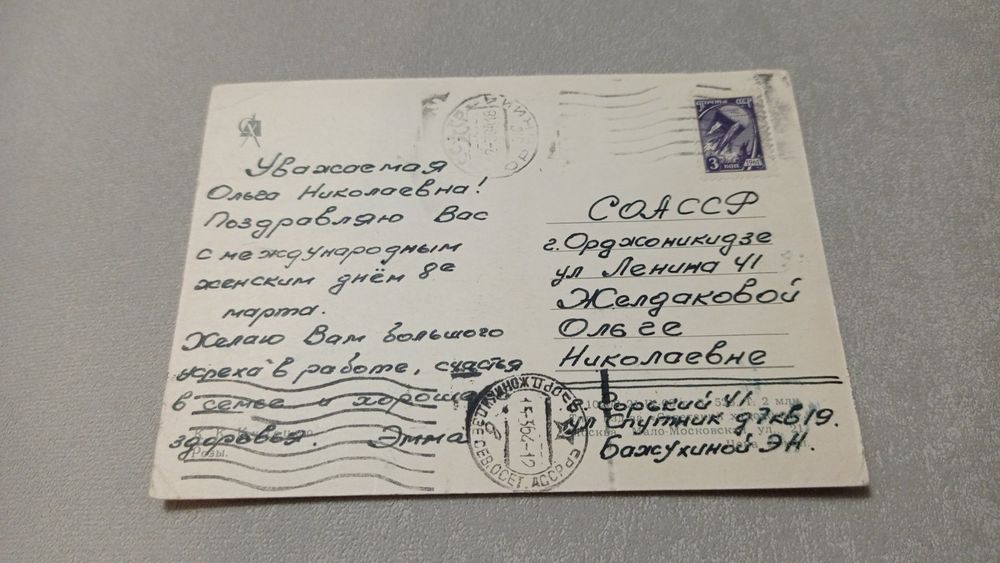 Уважаемая
Ольга Николаевна!
Поздравляю Вас
с международным
женским днём 8е
марта.
Желаю Вам большого
успеха в работе, счастья
в семье и хорошего
здоровья. Эмма
Розы.
ПОЧТА СССР
3 КОП
СОАССР
г. Орджоникидзе
ул Ленина 41
Желдаковой
Ольге
Николаевне
Горский 41
ул Спутник д 7 кв 19.
Бажухиной Э.Н.
2 млн
Москва Мало-Московская ул., 21
ОРДЖОНИКИДЗЕ
СЕВ.ОСЕТ.АССР